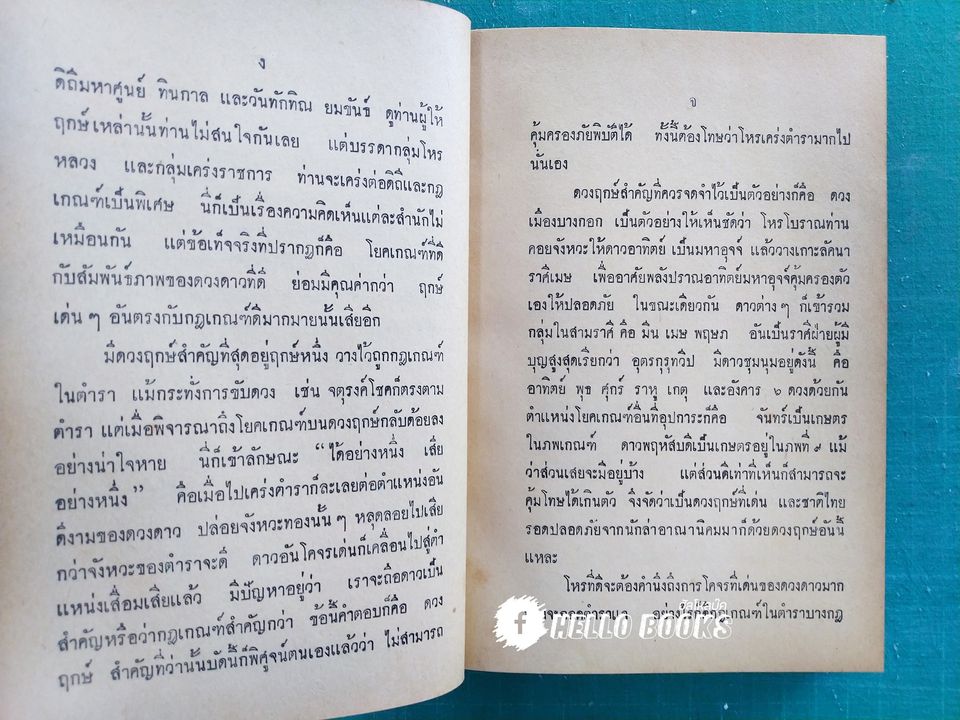 ง
ดิถีมหาศูนย์ ทินกาล และวันทักทิณ ยมขันธ์ ดูท่านผู้ให้
ฤกษ์เหล่านั้นท่านไม่สนใจกันเลย แต่บรรดากลุ่มโหร
หลวง และกลุ่มเคร่งราชการ ท่านจะเคร่งต่อดิถีและกฎ
เกณฑ์เป็นพิเศษ นี่ก็เป็นเรื่องความคิดเห็นแต่ละสำนักไม่
เหมือนกัน แต่ข้อเท็จจริงที่ปรากฏก็คือ โยคเกณฑ์ที่ดี
กับสัมพันธ์ภาพของดวงดาวที่ดี ย่อมมีคุณค่ากว่า ฤกษ์
เด่นๆ อันตรงกับกฎเกณฑ์ดีมากมายนั้นเสียอีก
มีดวงฤกษ์สำคัญที่สุดอยู่ฤกษ์หนึ่ง วางไว้ถูกกฎเกณฑ์
ในตำรา แม้กระทั่งการขับดวง เช่น จตุรงค์โชคก็ตรงตาม
ตำรา แต่เมื่อพิจารณาถึงโยคเกณฑ์บนดวงฤกษ์กลับด้อยลง
อย่างน่าใจหาย นี่ก็เข้าลักษณะ “ได้อย่างหนึ่ง เสีย
อย่างหนึ่ง” คือเมื่อไปเคร่งตำราก็ละเลยต่อตำแหน่งอัน
ดีงามของดวงดาว ปล่อยจังหวะทองนั้นๆ หลุดลอยไปเสีย
กว่าจังหวะของตำราจะดี ดาวอันโคจรเด่นก็เคลื่อนไปสู่ตำ
แหน่งเสื่อมเสียแล้ว มีปัญหาอยู่ว่า เราจะถือดาวเป็น
สำคัญหรือว่ากฎเกณฑ์สำคัญกว่า ข้อนี้คำตอบก็คือ ดวง
ฤกษ์ สำคัญที่ว่านั้นบัดนี้ก็พิศูจน์ตนเองแล้วว่า ไม่สามารถ
จ
คุ้มครองภัยพิบัติได้ ทั้งนี้ต้องโทษว่าโหรเคร่งตำรามากไป
นั่นเอง
ดวงฤกษ์สำคัญที่ควรจดจำไว้เป็นตัวอย่างก็คือ ดวง
เมืองบางกอก เป็นตัวอย่างให้เห็นชัดว่า โหรโบราณท่าน
คอยจังหวะให้ดาวอาทิตย์ เป็นมหาอุจจ์ แล้ววางเกาะลัคนา
ราศีเมษ เพื่ออาศัยพลังปราณอาทิตย์มหาอุจจ์คุ้มครองตัว
เองให้ปลอดภัย ในขณะเดียวกัน ดาวต่างๆ ก็เข้ารวม
กลุ่มในสามราศี คือ มีน เมษ พฤษภ อันเป็นราศีฝ่ายผู้มี
บุญสูงสุดเรียกว่า อุตรกุรุทวีป มีดาวชุมนุมอยู่ดังนี้ คือ
อาทิตย์ พุธ ศุกร์ ราหู เกตุ และอังคาร ๖ ดวงด้วยกัน
ตำแหน่งโยคเกณฑ์อื่นที่อุปการะก็คือ จันทร์เป็นเกษตร
ในภพเกณฑ์ ดาวพฤหัสบดีเป็นเกษตรอยู่ในภพที่ ๙ แม้
ว่าส่วนเสียจะมีอยู่บ้าง แต่ส่วนดีเท่าที่เห็นก็สามารถจะ
คุ้มโทษได้เกินตัว จึงจัดว่าเป็นดวงฤกษ์ที่เด่น และชาติไทย
รอดปลอดภัยจากนักล่าอาณานิคมมาก็ด้วยดวงฤกษ์อันนี้
แหละ
โหรที่ดีจะต้องคำนึงถึงการโคจรที่เด่นของดวงดาวมาก
อย่างไรก็ดีกฎเกณฑ์ในตำราบางกฎ
HELLO BOOKS